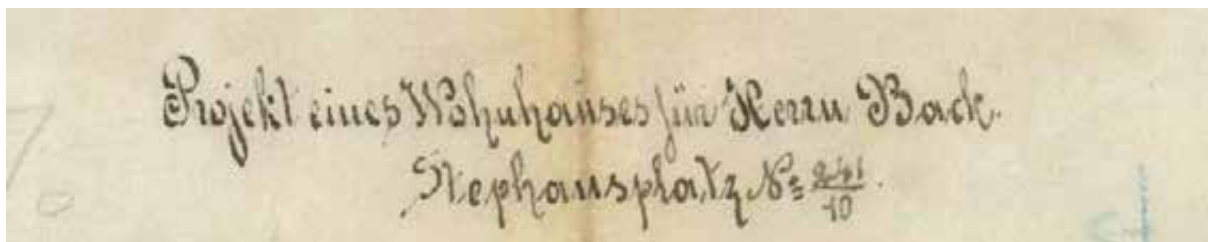 Projekt eines Wohnhauses für Herrn Back.
Stephansplatz №
10